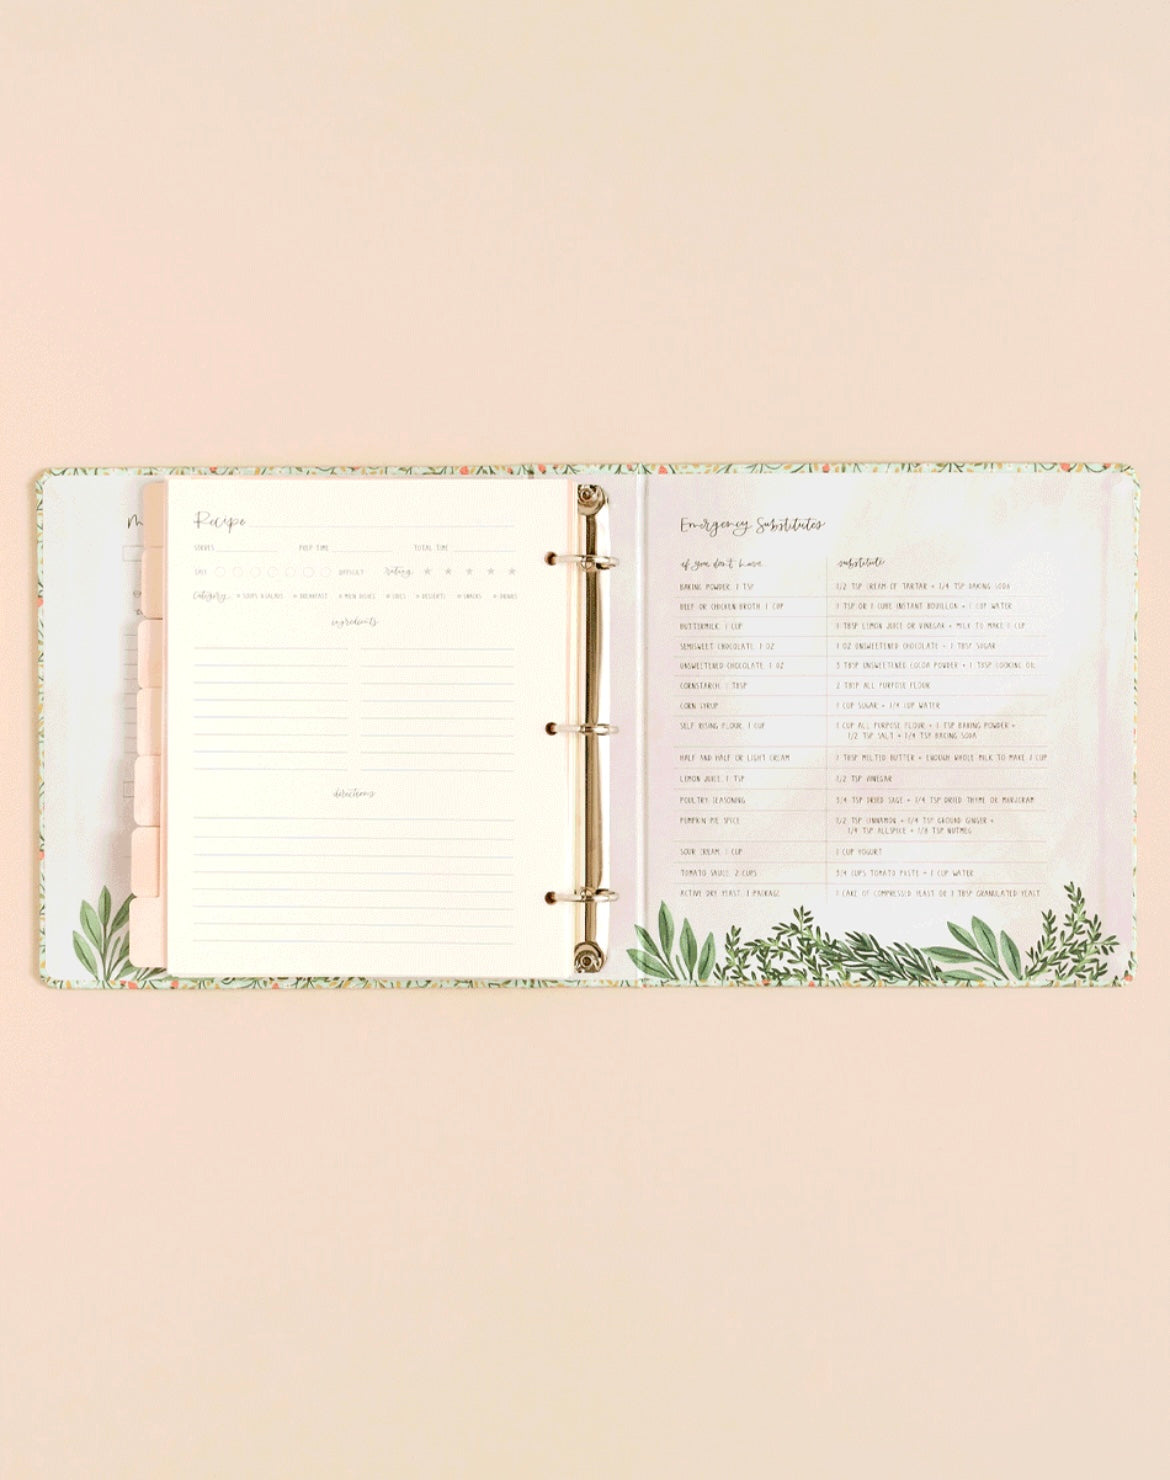 Recipe
SERVES
PREP TIME
TOTAL TIME
EASY
DIFFICULT
rating
Category
SOUPS & SALADS
BREAKFAST
MAIN DISHES
SIDES
DESSERTS
SNACKS
DRINKS
ingredients
directions
Emergency Substitutes
if you don't have
substitute
BAKING POWDER, 1 TSP
1/2 TSP CREAM OF TARTAR + 1/4 TSP BAKING SODA
BEEF OR CHICKEN BROTH, 1 CUP
1 TSP OR 1 CUBE INSTANT BOUILLON + 1 CUP WATER
BUTTERMILK, 1 CUP
1 TBSP LEMON JUICE OR VINEGAR + MILK TO MAKE 1 CUP
SEMISWEET CHOCOLATE, 1 OZ
1 OZ UNSWEETENED CHOCOLATE + 1 TBSP SUGAR
UNSWEETENED CHOCOLATE, 1 OZ
3 TBSP UNSWEETENED COCOA POWDER + 1 TBSP COOKING OIL
CORNSTARCH, 1 TBSP
2 TBSP ALL PURPOSE FLOUR
CORN SYRUP
1 CUP SUGAR + 1/4 CUP WATER
SELF RISING FLOUR, 1 CUP
1 CUP ALL PURPOSE FLOUR + 1 TSP BAKING POWDER +
1/2 TSP SALT + 1/4 TSP BAKING SODA
HALF AND HALF OR LIGHT CREAM
1 TBSP MELTED BUTTER + ENOUGH WHOLE MILK TO MAKE 1 CUP
LEMON JUICE, 1 TSP
1/2 TSP VINEGAR
POULTRY SEASONING
3/4 TSP DRIED SAGE + 1/4 TSP DRIED THYME OR MARJORAM
PUMPKIN PIE SPICE
1/2 TSP CINNAMON + 1/4 TSP GROUND GINGER +
1/4 TSP ALLSPICE + 1/8 TSP NUTMEG
SOUR CREAM, 1 CUP
1 CUP YOGURT
TOMATO SAUCE, 2 CUPS
3/4 CUPS TOMATO PASTE + 1 CUP WATER
ACTIVE DRY YEAST, 1 PACKAGE
1 CAKE OF COMPRESSED YEAST OR 1 TBSP GRANULATED YEAST